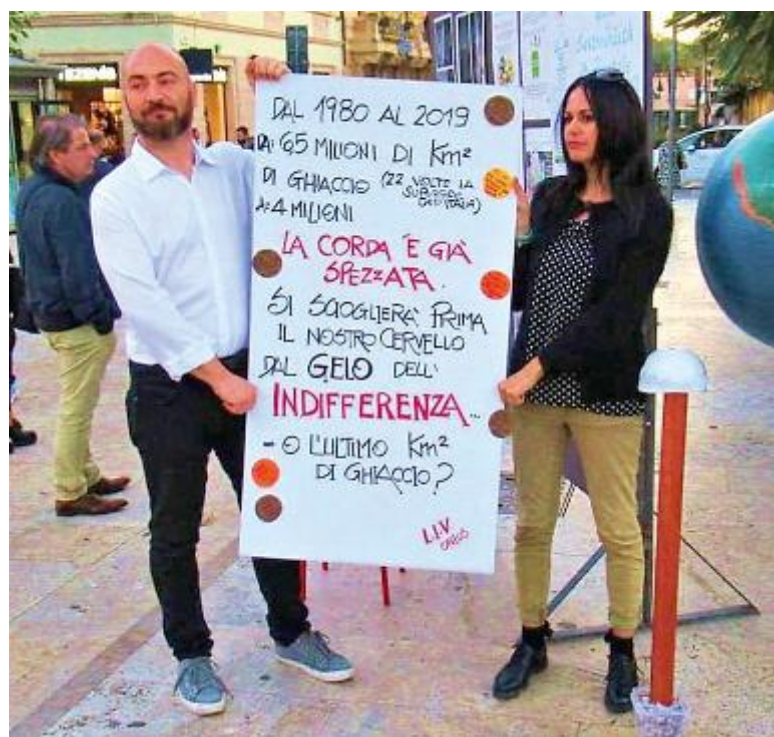 DAL 1980 AL 2019
DA 6,5 MILIONI DI Km²
DI GHIACCIO (22 VOLTE LA
SUPERFICE
DELL'ITALIA)
A: 4 MILIONI
LA CORDA È GIÀ
SPEZZATA.
SI SCIOGLIERÀ PRIMA
IL NOSTRO CERVELLO
DAL GELO DELL'
INDIFFERENZA...
- O L'ULTIMO Km²
DI GHIACCIO?
Sostenibilità